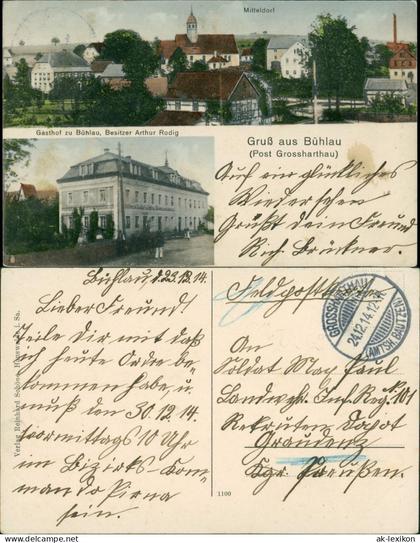 Mitteldorf
Gasthof zu Bühlau, Besitzer Arthur Rodig
Gruß aus Bühlau
(Post Grossharthau)
Auf ein glückliches
Wiedersehen
Grüßt dein Freund
Rich. Brückner.
Bühlau, d. 23.12.14.
Lieber Freund!
Teile dir mit daß
ich heute Ordre be-
kommen habe, u.
muß den 30.12.14.
vormittags 10 Uhr
im Bezirks-Kom-
mando Pirna
sein.
Verlag Reinhard
1100
Feldpostkarte
GROSSHARTHAU
24.12.14.
(AMTSH. BAUTZEN)
An
Soldat Max Paul
Landwehr Inf. Reg. No 101
Rekruten Depot
Graudenz
Kgr. Preußen.
ak-lexikon